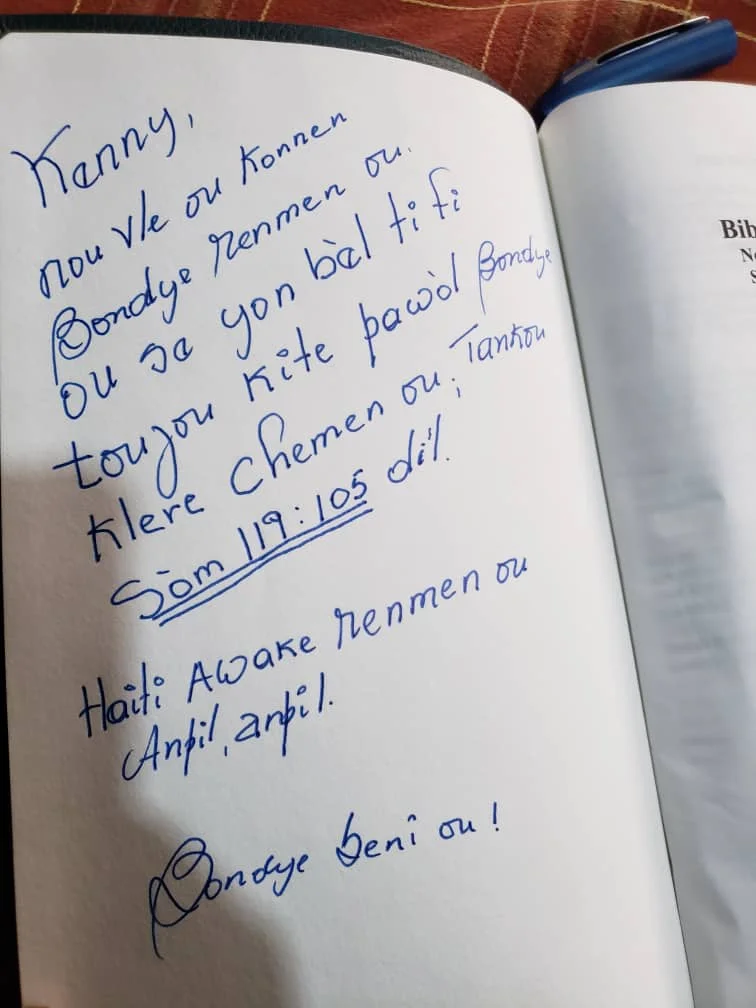 Kenny,
nou vle ou konnen
Bondye renmen ou.
ou se yon bèl ti fi
toujou kite pawòl Bondye
klere chemen ou, Tankou
Sòm 119:105 di'l.
Haiti Awake renmen ou
Anpil, anpil.
Bondye beni ou!
Bib
N
S